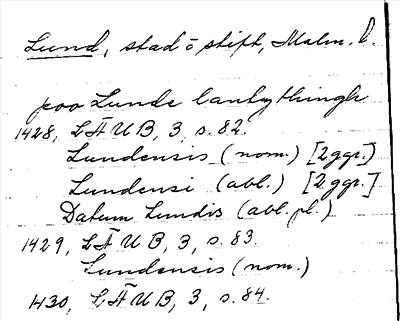 Lund, stad o stift, Malm. l.
poo Lunde lantzthingh
1428, LÄUB, 3, s. 82.
Lundensis (nom.) [2 ggr.]
Lundensi (abl.) [2 ggr.]
Datum Lundis (abl. pl.)
1429, LÄUB, 3, s. 83.
Lundensis (nom.)
1430, LÄUB, 3, s. 84.